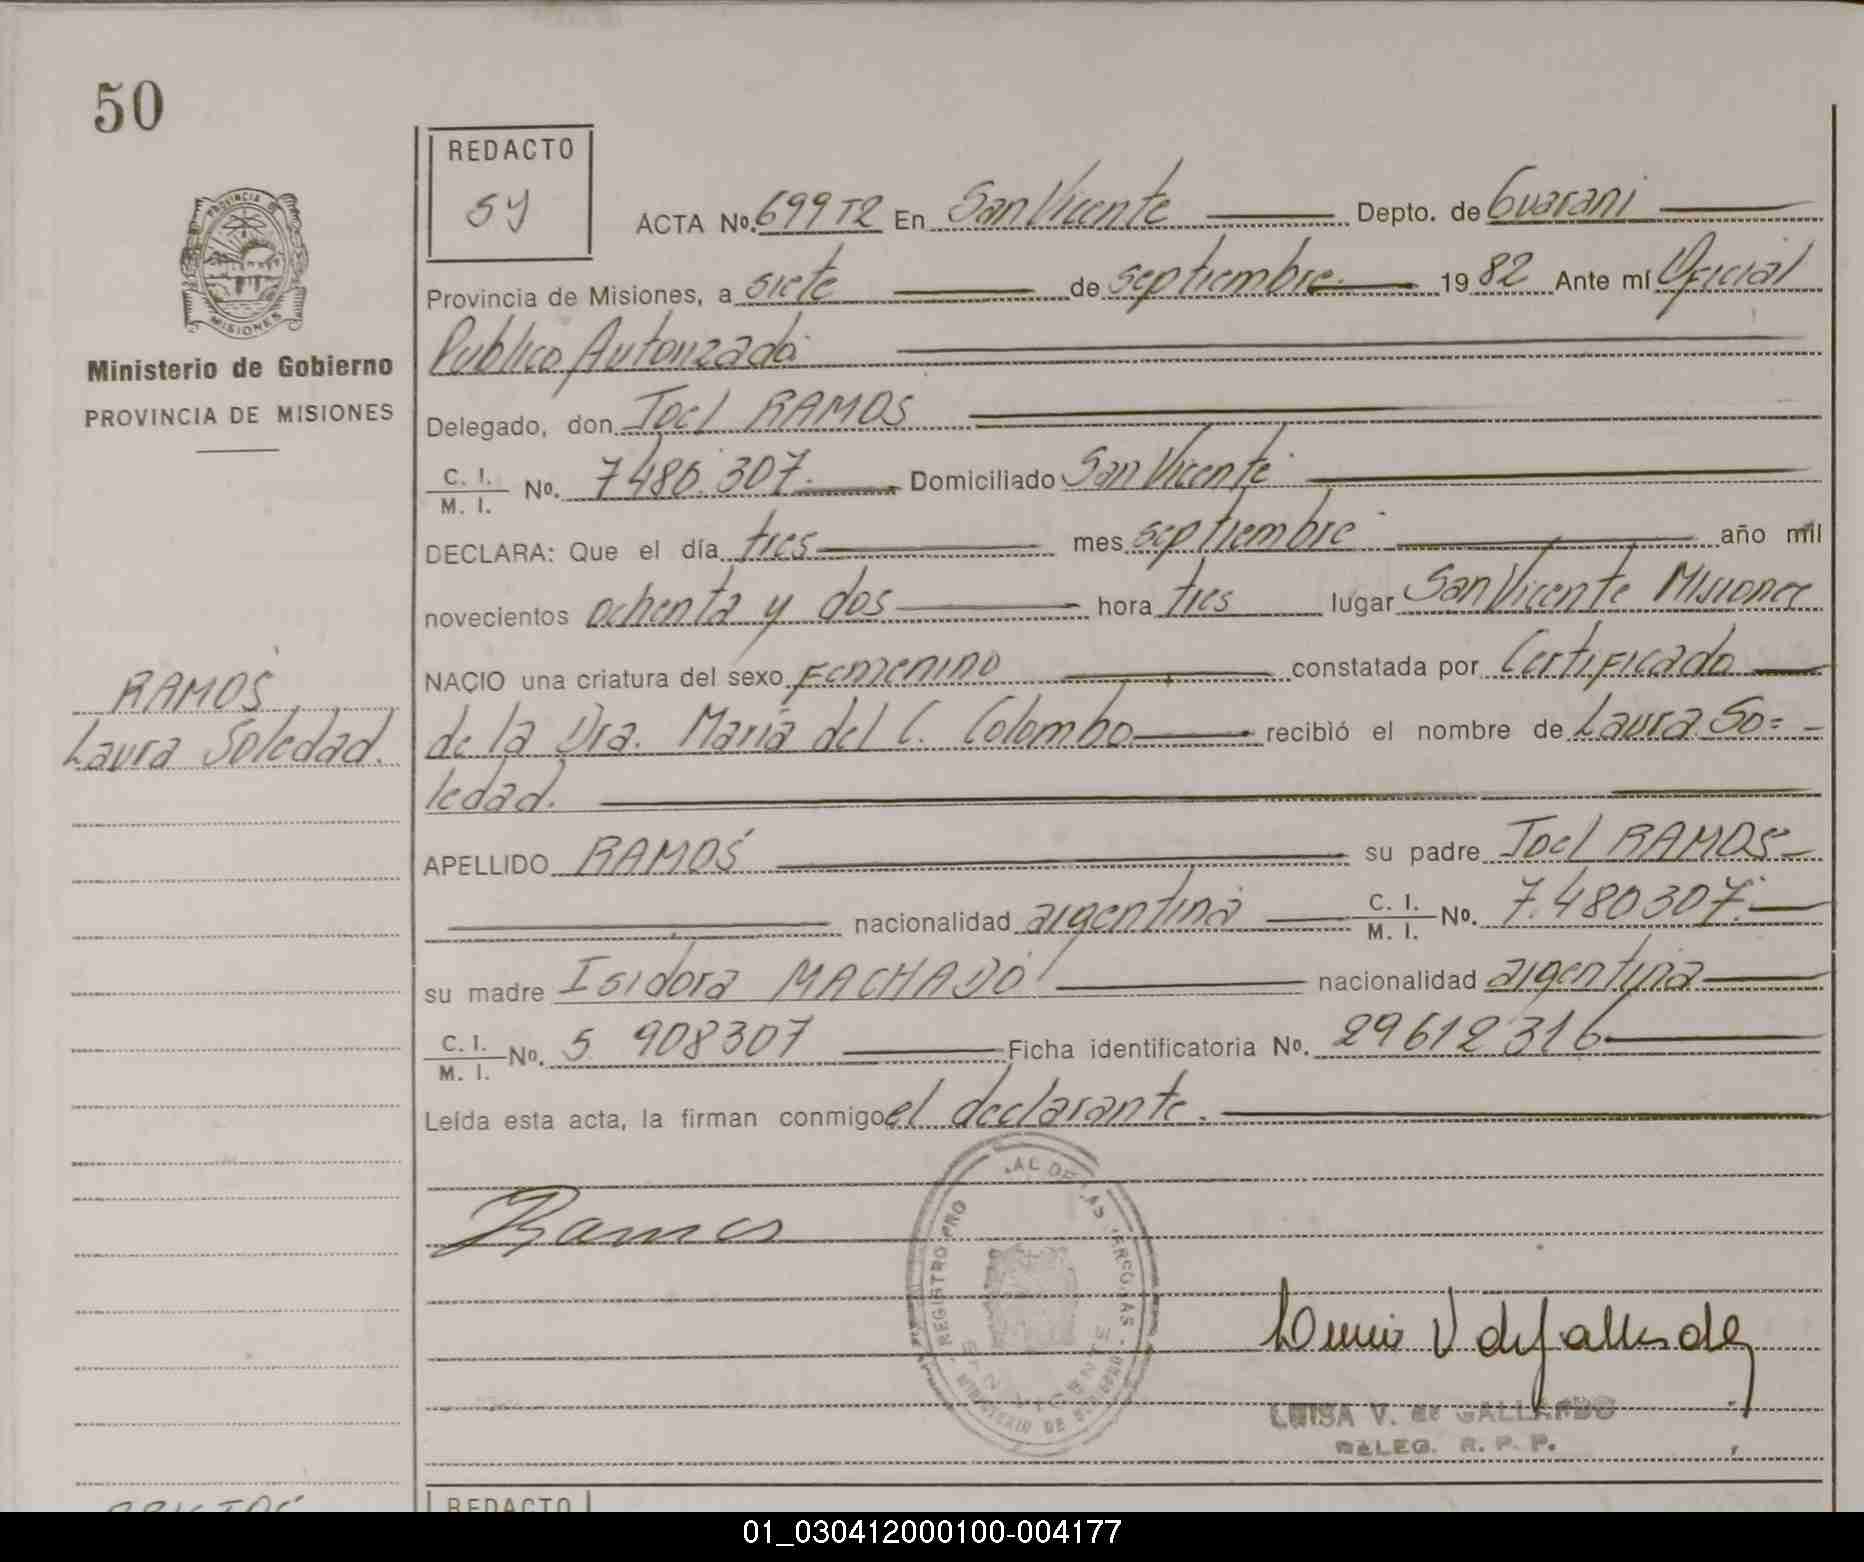 50
REDACTO
SY
ACTA No. 699 T2 En San Vicente Depto. de Guarani
PROVINCIA DE
MISIONES
Provincia de Misiones, a siete de septiembre 1982 Ante mí Oficial
Publico Autorizado
Ministerio de Gobierno
PROVINCIA DE MISIONES
Delegado, don Joel RAMOS
C. I. / M. I. No. 7480.307. Domiciliado San Vicente
DECLARA: Que el día tres mes septiembre año mil
novecientos ochenta y dos hora tres lugar San Vicente Misiones
NACIO una criatura del sexo Femenino constatada por Certificado
RAMOS
Laura Soledad.
de la Dra. Maria del C. Colombo recibió el nombre de Laura So=
ledad.
APELLIDO RAMOS su padre Joel RAMOS
nacionalidad argentina C. I. / M. I. No. 7.480307.
su madre Isidora MACHADO nacionalidad argentina
C. I. / M. I. No. 5 908307 Ficha identificatoria No. 29612316
Leída esta acta, la firman conmigo el declarante.
Ramos
REGISTRO DE LAS PERSONAS
LUISA V. de GALLARDO
DELEG. R. P. P.
REDACTO
01_030412000100-004177